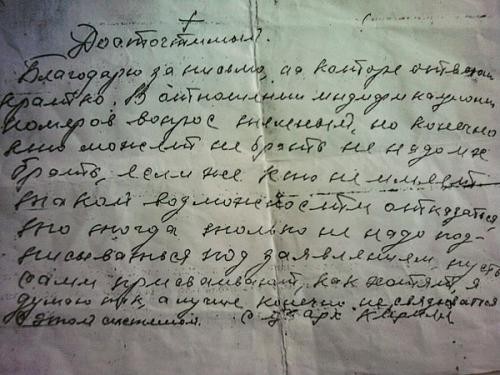 +
Досточтимый.
Благодарю за письмо, на которое отвечаю
кратко. В отношении индификационных
номеров вопрос сложный, но конечно
кто может не брать не надо их
брать, если же кто не имеет
такой возможности отказаться
то тогда только не надо под-
писываться под заявлением, пусть
сами присваивают, как хотят, я
думаю так, а лучше конечно не связываться
с этой системой. С ув. арх Кирилл